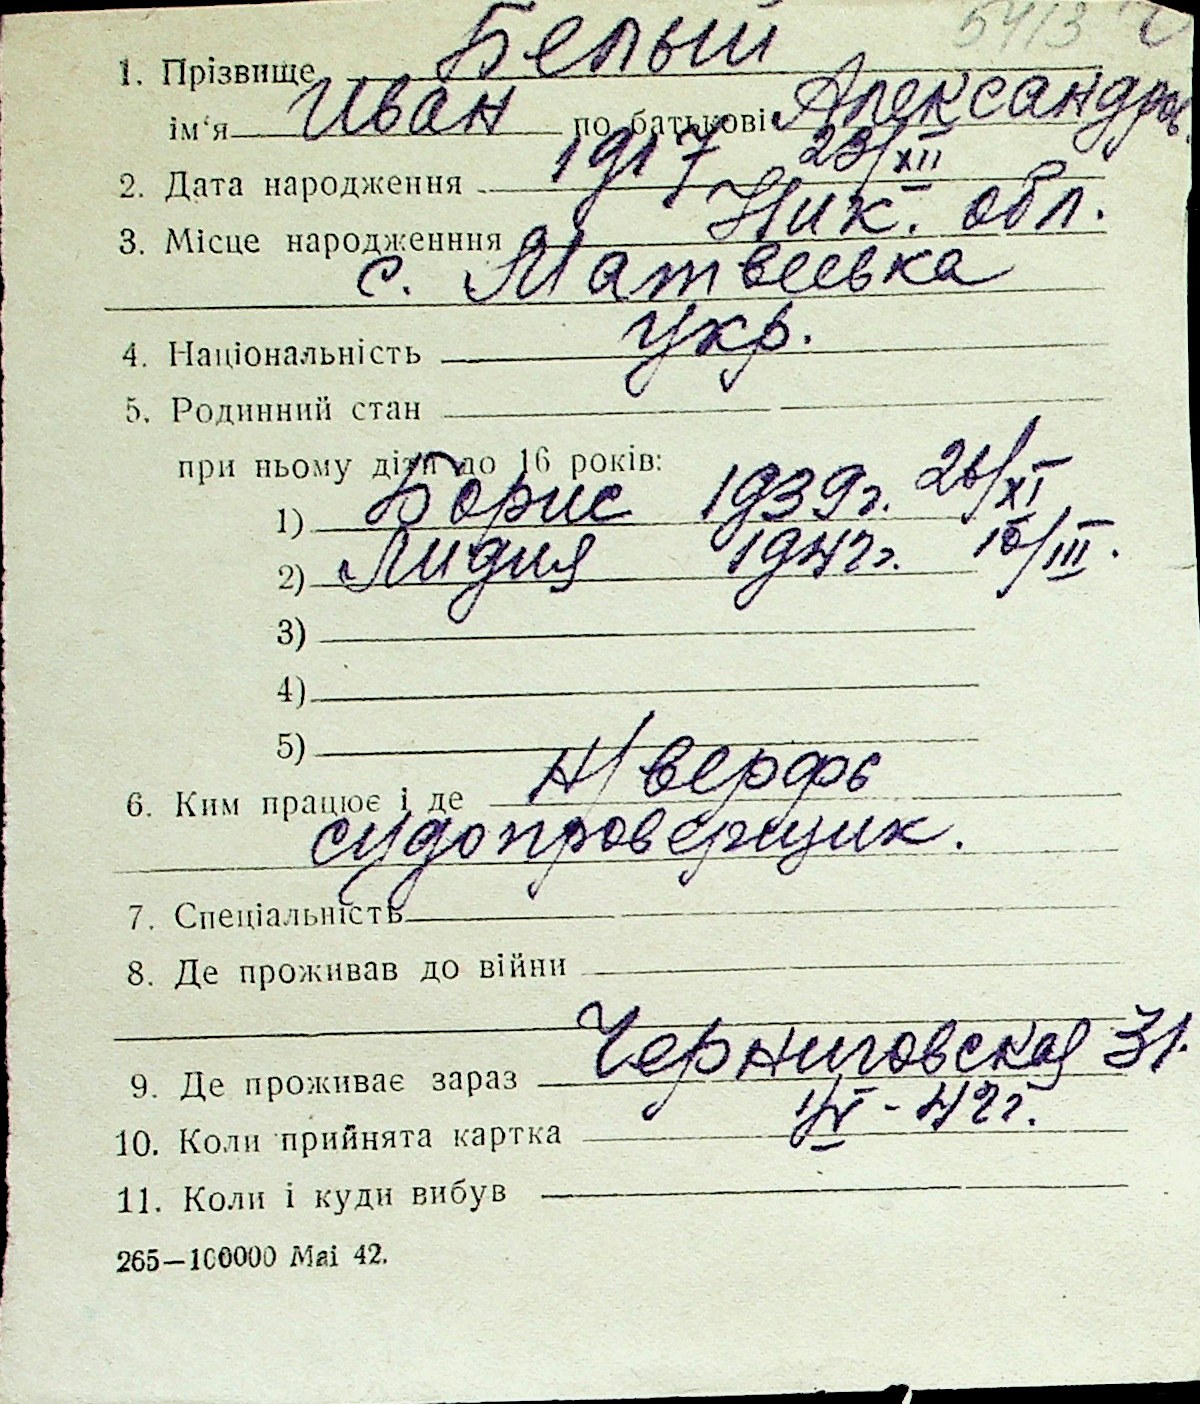 5413
1. Прізвище Белый
ім‘я Иван по батькові Александров.
2. Дата народження 1917 23/XII
3. Місце народженння Ник. обл.
с. Матвеевка
4. Національність укр.
5. Родинний стан
при ньому діти до 16 років:
1) Борис 1939г. 26/XI
2) Лидия 1942г. 16/III.
3)
4)
5)
6. Ким працює і де Н/верфь
судопроверщик.
7. Спеціальність
8. Де проживав до війни
9. Де проживає зараз Черниговская 31.
10. Коли прийнята картка 1/V - 42г.
11. Коли і куди вибув
265—100000 Mai 42.